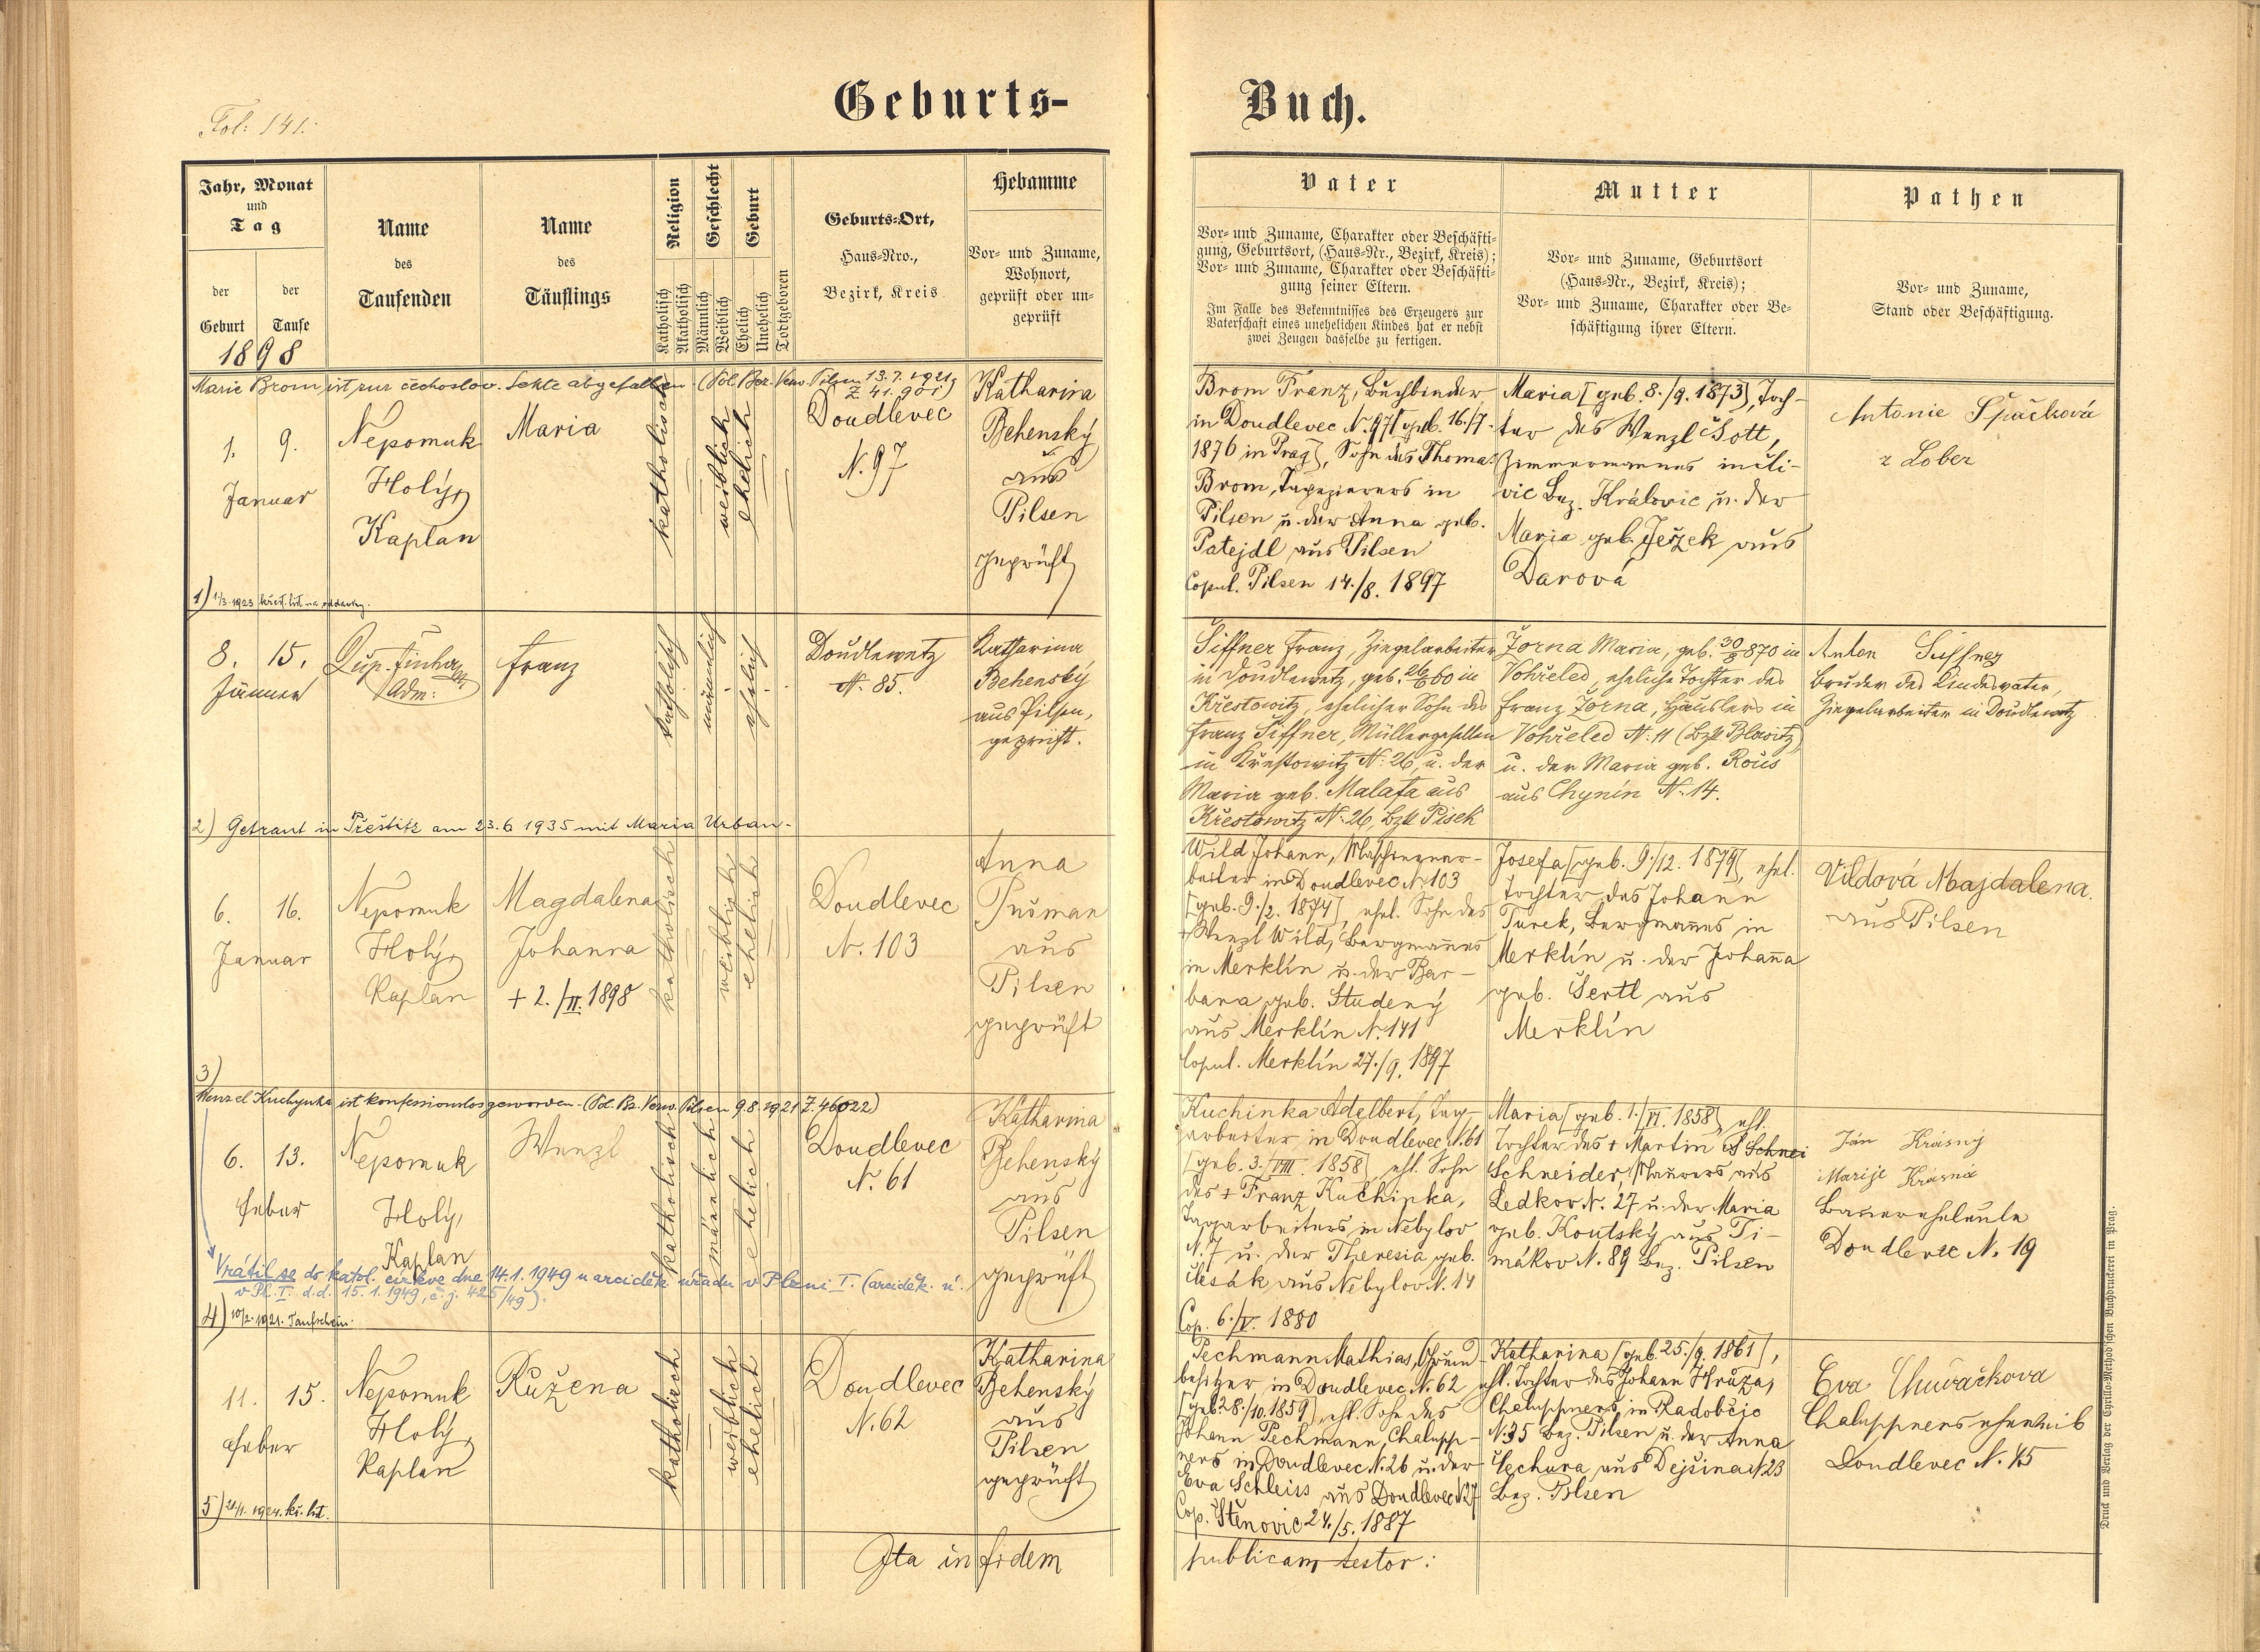 Fol: 141.
Geburts-
Buch.
Jahr, Monat
und
Tag
der
Geburt
der
Taufe
1898
Name
des
Taufenden
Name
des
Täuflings
Religion
Katholisch
Akatholisch
Geschlecht
Männlich
Weiblich
Geburt
Ehelich
Unehelich
Todtgeboren
Geburts-Ort,
Haus-Nro.,
Bezirk, Kreis
Hebamme
Vor- und Zuname,
Wohnort,
geprüft oder un-
geprüft
Vater
Vor- und Zuname, Charakter oder Beschäfti-
gung, Geburtsort, (Haus-Nr., Bezirk, Kreis);
Vor- und Zuname, Charakter oder Beschäfti-
gung seiner Eltern.
Im Falle des Bekenntnisses des Erzeugers zur
Vaterschaft eines unehelichen Kindes hat er nebst
zwei Zeugen dasselbe zu fertigen.
Mutter
Vor- und Zuname, Geburtsort
(Haus-Nr., Bezirk, Kreis);
Vor- und Zuname, Charakter oder Be-
schäftigung ihrer Eltern.
Pathen
Vor- und Zuname,
Stand oder Beschäftigung.
Marie Brom ist zur čechoslov. Sekte abgefallen. (Pol. Bez. Verw. Pilsen 13.7.1921,
Z. 41.901)
1. 9.
Januar
Nepomuk
Holý,
Kaplan
Maria
katholisch
weiblich
ehelich
Doudlevec
N. 97
Katharina
Behenský
aus
Pilsen
geprüft
Brom Franz, Buchbinder
in Doudlevec N. 97 [geb. 16./7.
1876 in Prag], Sohn des Thomas
Brom, Tapezierers in
Pilsen u. der Anna geb.
Patejdl aus Pilsen
Copul. Pilsen 14./8. 1897
Maria [geb. 8./9. 1873], Toch-
ter des Wenzl Šott,
Zimmermannes in
vic Bez. Královic u. der
Maria geb. Ježek aus
Darová
Antonie Špačková
z Lober
1) 1/3. 1923 křest. list na oddavky.
8. 15.
Jänner
Adm:
Franz
katholisch
männlich
ehelich
Doudlewetz
N. 85.
Katharina
Behenský
aus Pilsen,
geprüft.
Siffner Franz, Ziegelarbeiter
in Doudlewetz, geb. 26/6 60 in
Křestowitz, ehelicher Sohn des
Franz Siffner, Müllergesellen
in Křestowitz N. 26, u. der
Maria geb. Malafa aus
Křestowitz N. 26, Bzk Pisek
Žorna Maria, geb. 30/8 870 in
Vohřeled, eheliche Tochter des
Franz Žorna, Häuslers in
Vohřeled N. 11 (Bzk Blowitz)
u. der Maria geb. Rous
aus Chynín N. 14.
Anton Siffner
Bruder des Kindesvater,
Ziegelarbeiter in Doudlewetz
2) Getraut in Přeštitz am 23.6 1935 mit Maria Urban.
6. 16.
Januar
Nepomuk
Holý,
Kaplan
Magdalena
Johanna
+ 2./II. 1898
katholisch
weiblich
ehelich
Doudlevec
N. 103
Anna
Tušman
aus
Pilsen
geprüft
Wild Johann, Maschinenar-
beiter in Doudlevec N. 103
[geb. 9./2. 1874], ehel. Sohn des
+ Wenzl Wild, Bergmannes
in Merklín u. der Bar-
bara geb. Studený
aus Merklín N. 141
Copul. Merklín 27./9. 1897
Josefa [geb. 9./12. 1879], ehel.
Tochter des Johann
Turek, Bergmannes in
Merklín u. der Johanna
geb. Sertl aus
Merklín
Vildová Majdalena.
aus Pilsen
3)
Wenzel Kuchynka ist konfessionslos geworden. (Pol. Bz. Verw. Pilsen 9.8.1921 Z. 46022)
6. 13.
Feber
Nepomuk
Holý,
Kaplan
Wenzl
katholisch
männlich
ehelich
Doudlevec
N. 61
Katharina
Behenský
aus
Pilsen
geprüft
Kuchinka Adelbert, Tag-
arbeiter in Doudlevec N. 61
[geb. 3./VIII. 1858], ehl. Sohn
des + Franz Kuchinka,
Tagarbeiters in Nebylov
N. 7 u. der Theresia geb.
Česák aus Nebylov N. 14
Cop. 6./V. 1880
Maria [geb. 1./VI. 1858], ehl.
Tochter des + Martin Schnei
Schneider, Maurers aus
Ledkov N. 27 u. der Maria
geb. Koutský aus Ti-
mákov N. 89 Bez. Pilsen
Ján Krásný
Marije Krásná
Bauereheleute
Doudlevec N. 19
Vrátil se do katol. církve dne 14.1.1949 u arciděk. úřadu v Plzni I. (arciděk. ú.
v Pl. I. d.d. 15.1.1949, č.j. 425/49).
4) 10/2. 1921. Taufschein.
11. 15.
Feber
Nepomuk
Holý,
Kaplan
Růžena
katholisch
weiblich
ehelich
Doudlevec
N. 62
Katharina
Behenský
aus
Pilsen
geprüft
Pechmann Mathias, Grund-
besitzer in Doudlevec N. 62
[geb. 28./10. 1859], ehl. Sohn des
Johann Pechmann, Chalupp-
ners in Doudlevec N. 26 u. der
Eva Schleiss aus Doudlevec N. 27
Cop. Štěnovic 24./5. 1887
Katharina [geb. 25./9. 1861],
ehl. Tochter des Johann Hruza,
Chaluppners in Radobčic
N. 35 Bez. Pilsen u. der Anna
Čechura aus Dejšina N. 23
Bez. Pilsen
Eva Chuváčkova
Chaluppnersehe­weib
Doudlevec N. 45
5) 21/1. 1924. kř. list.
Ita in fidem
publicam testor:
Druck und Verlag der Cyrillo-Method'schen Buchdruckerei in Prag.